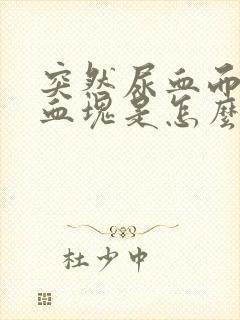 突然尿血而
血塊是怎麼
杜少中